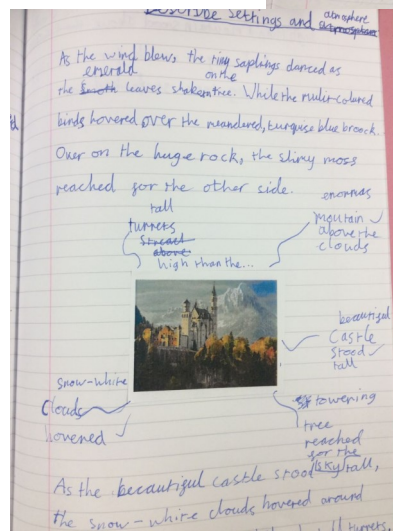 Describe settings and atmosphere
As the wind blew, the tiny saplings danced as
the emerald leaves shake on the tree. While the multi-colored
birds hovered over the meandered, turquise blue broock.
Over on the huge rock, the slimy moss
reached for the other side.
tall
turrets
streach
above
high than the...
enormas
moutain
above the
clouds
beautigul
Castle
stood
tall
snow-white
Clouds
hovered
towering
tree
reached
for the
sky
As the beautigul castle stood tall,
the snow-white clouds hovered around
turrets,